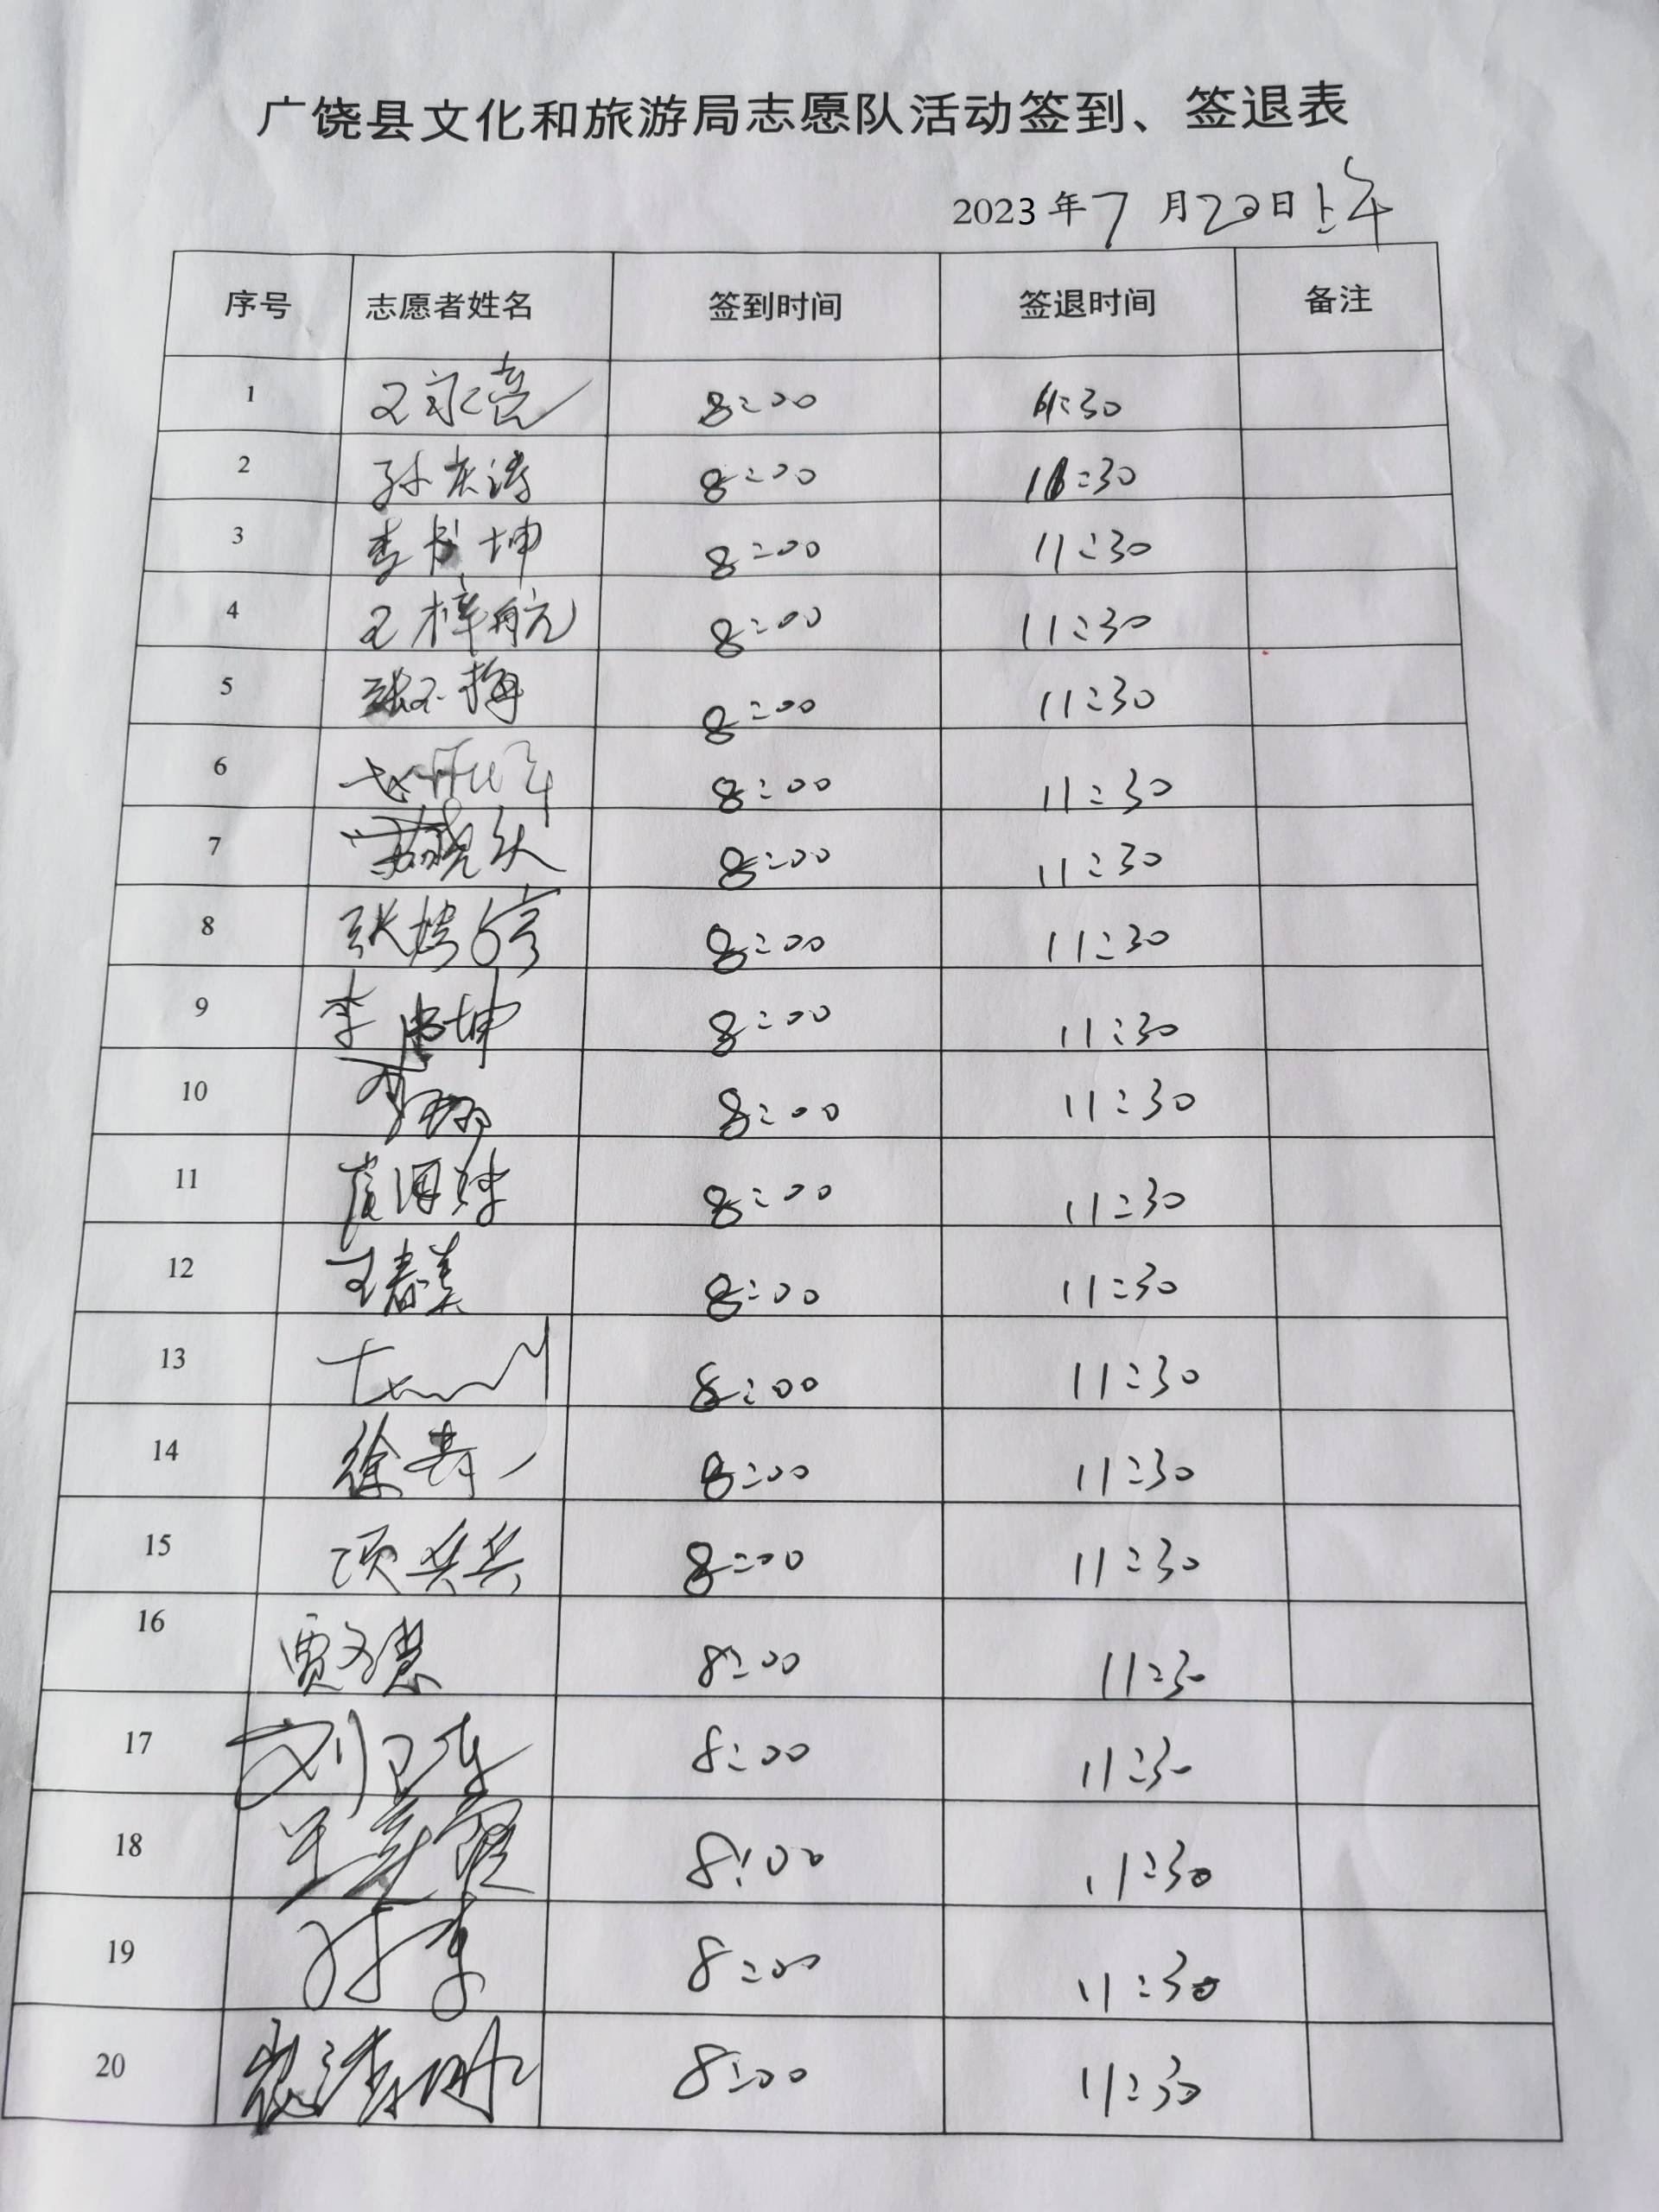 广饶县文化和旅游局志愿队活动签到、签退表
2023年7月20日上午
序号 志愿者姓名 签到时间 签退时间 备注
1 王永亮 8:00 11:30
2 孙庆涛 8:00 11:30
3 李书坤 8:00 11:30
4 王梓航 8:00 11:30
5 张 梅 8:00 11:30
6 8:00 11:30
7 8:00 11:30
8 张 8:00 11:30
9 李 坤 8:00 11:30
10 李 8:00 11:30
11 崔 8:00 11:30
12 王春美 8:00 11:30
13 8:00 11:30
14 徐寿一 8:00 11:30
15 项兵兵 8:00 11:30
16 贾文慧 8:00 11:30
17 刘卫东 8:00 11:30
18 王 8:00 11:30
19 孙 8:00 11:30
20 8:00 11:30